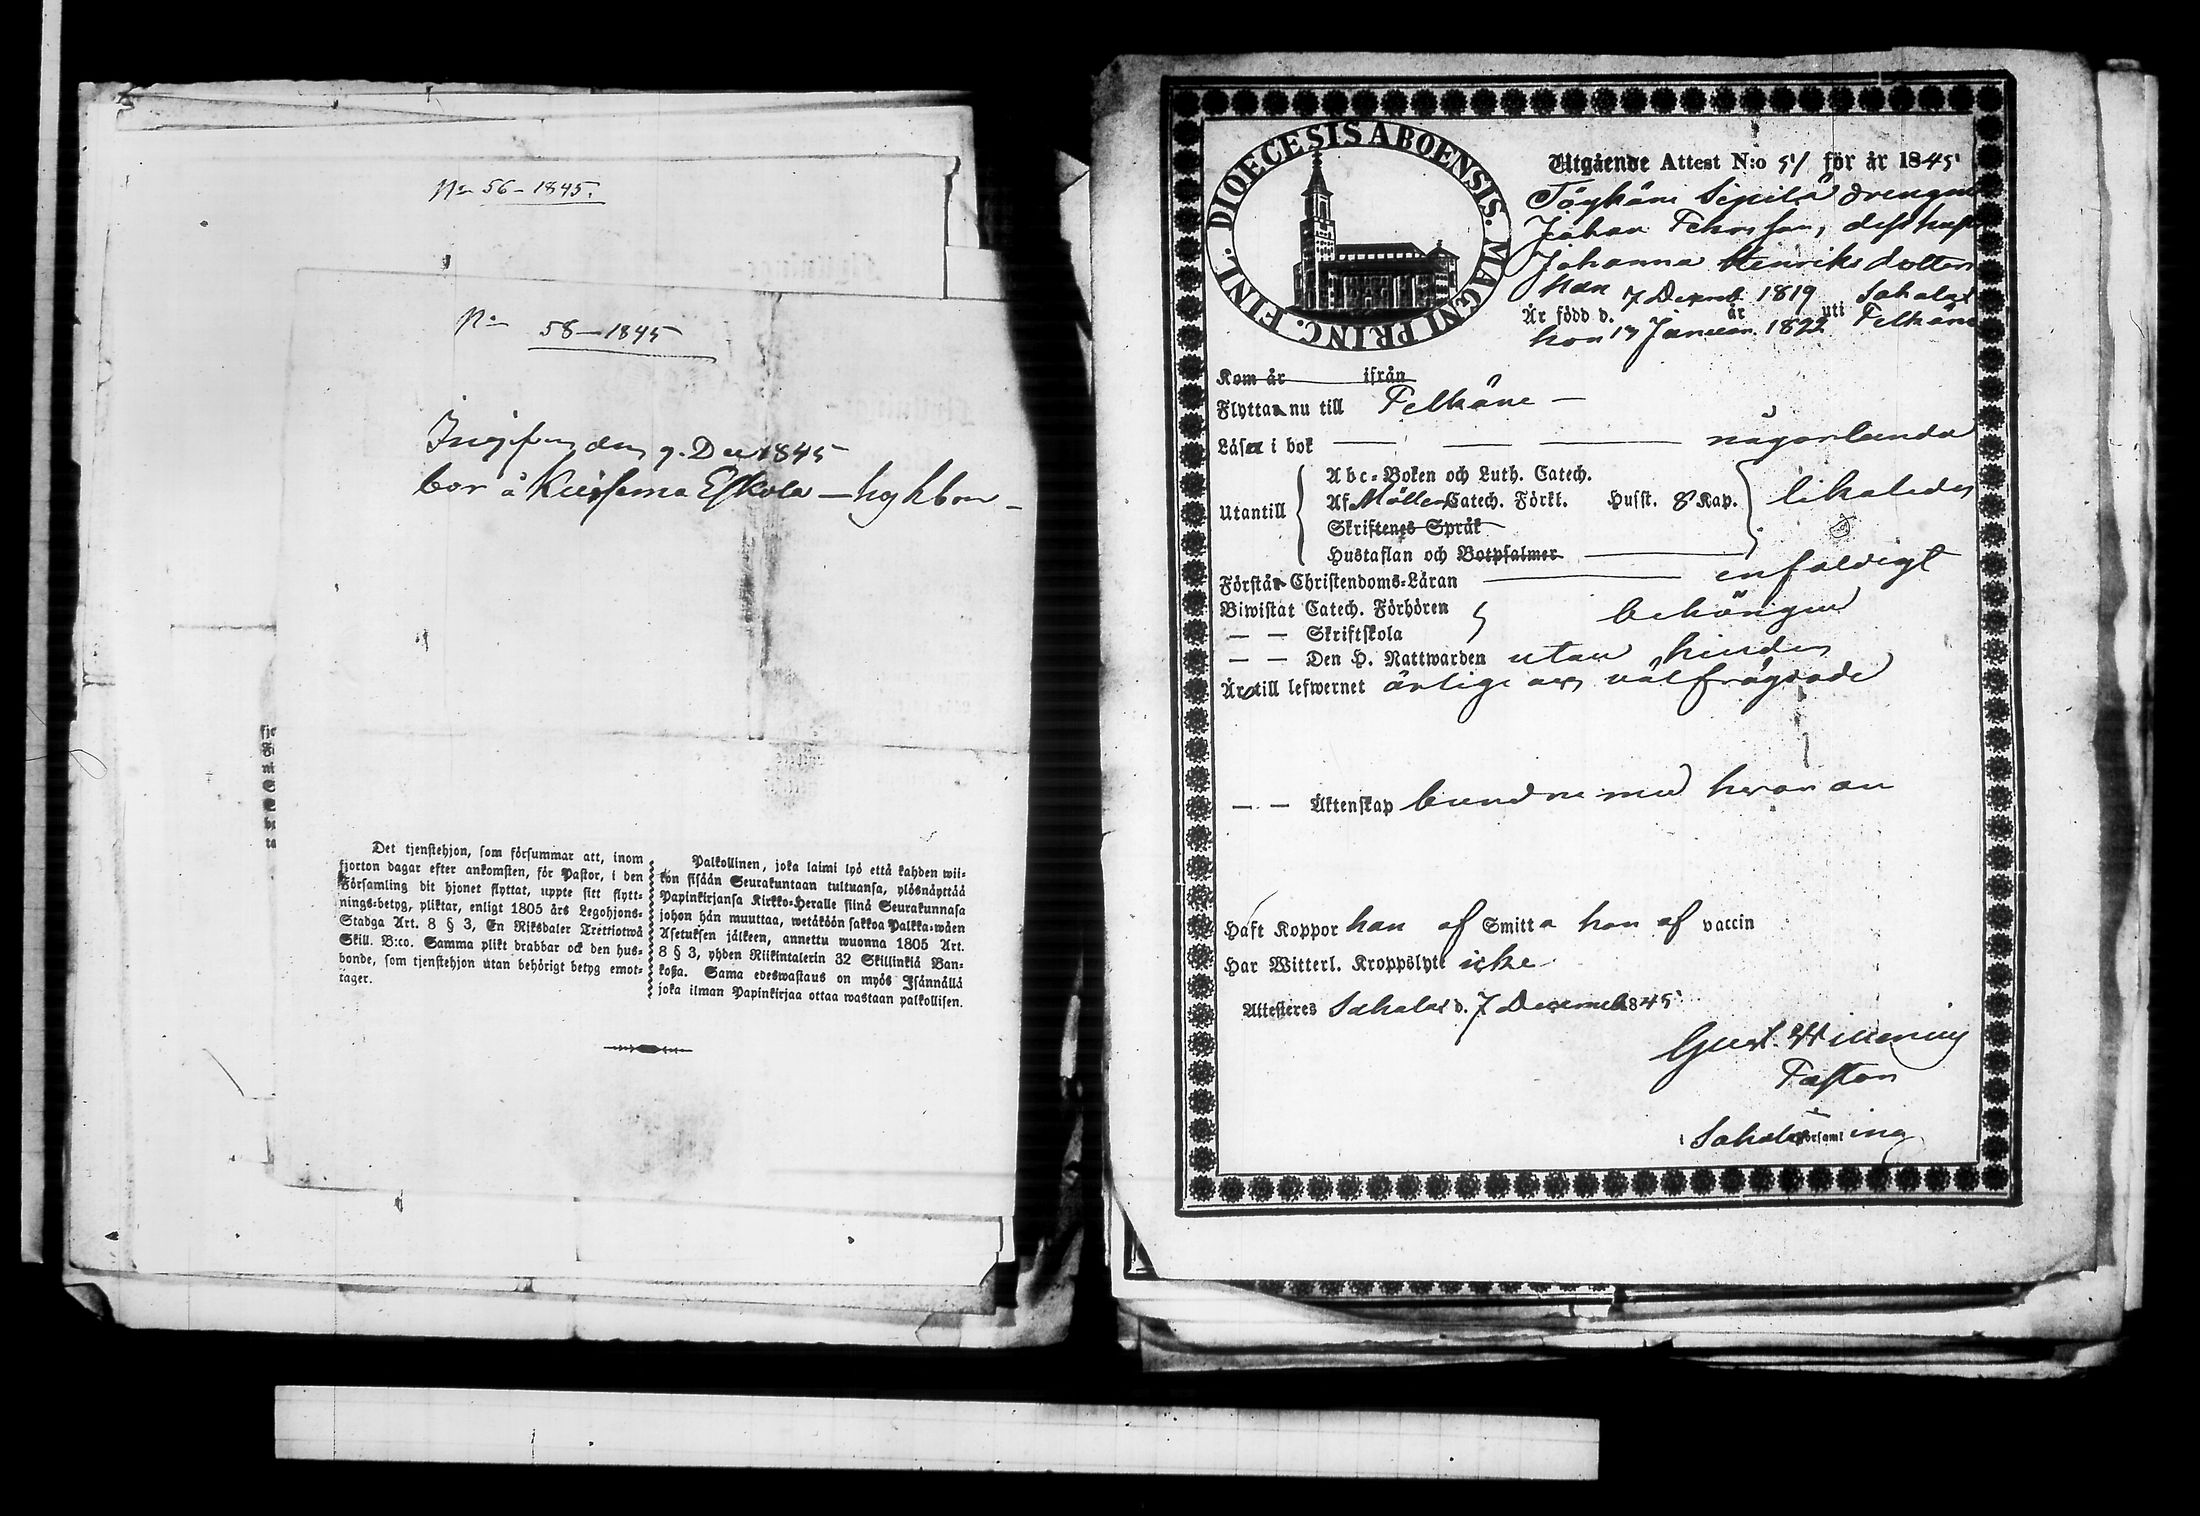 No 56 - 1845.
No 58 - 1845
den 9. Dec 1845
bor å Kuisema Eskola
Det tjenstehjon, som försummar att, inom
fjorton dagar efter ankomsten, för Pastor, i den
Församling dit hjonet flyttat, uppte sitt flytt-
nings-betyg, pliktar, enligt 1805 års Legohjons-
Stadga Art. 8 § 3, En Riksdaler Trettiotwå
Skill. B:co. Samma plikt drabbar ock den hus-
bonde, som tjenstehjon utan behörigt betyg emot-
tager.
Palkollinen, joka laimi lyö että kahden wii-
kon sisään Seurakuntaan tultuansa, ylösnäyttää
Papinkirjansa Kirkko-Heralle siinä Seurakunnasa
johon hän muuttaa, wetäköön sakkoa Palkka-wäen
Asetuksen jälkeen, annettu wuonna 1805 Art.
8 § 3, yhden Riikintalerin 32 Skillinkiä Ban-
koßa. Sama edeswastaus on myös Isännällä
joka ilman Papinkirjaa ottaa wastaan palkollisen.
DIOECESIS ABOENSIS. MAGNI PRINC. FINL.
Utgående Attest N:o 51 för år 1845
Töyhäni Sipilä drengen
Johan Johansson,
Johanna Henriksdotter
han 7 Decemb 1819 Sahalax
Är född d. år uti
hon 17 Januari 1822 Pelkäne
Kom år ifrån
Flytta nu till Pelkäne
Läsa i bok någorlunda
Abc-Boken och Luth. Catech.
Utantill Af Möllers Catech. Förkl. Husst. 8 Kap. likaledes
Skriftenes Språk
Hustaflan och Botpsalmer
Förstår Christendoms-Läran enfaldigt
Biwistat Catech. Förhören behörigen
— — Skriftskola
— — Den H. Nattwarden utan hinder
Äro till lefwernet ärlige och välfrägdade
— — Äktenskap bundne med hvaran
Haft Koppor han af Smitta hon af vaccin
Har Witterl. Kroppslyte icke
Attesteras Sahalax d. 7 December 1845
Gust. Willenius
Pastor
i Sahalax Församling